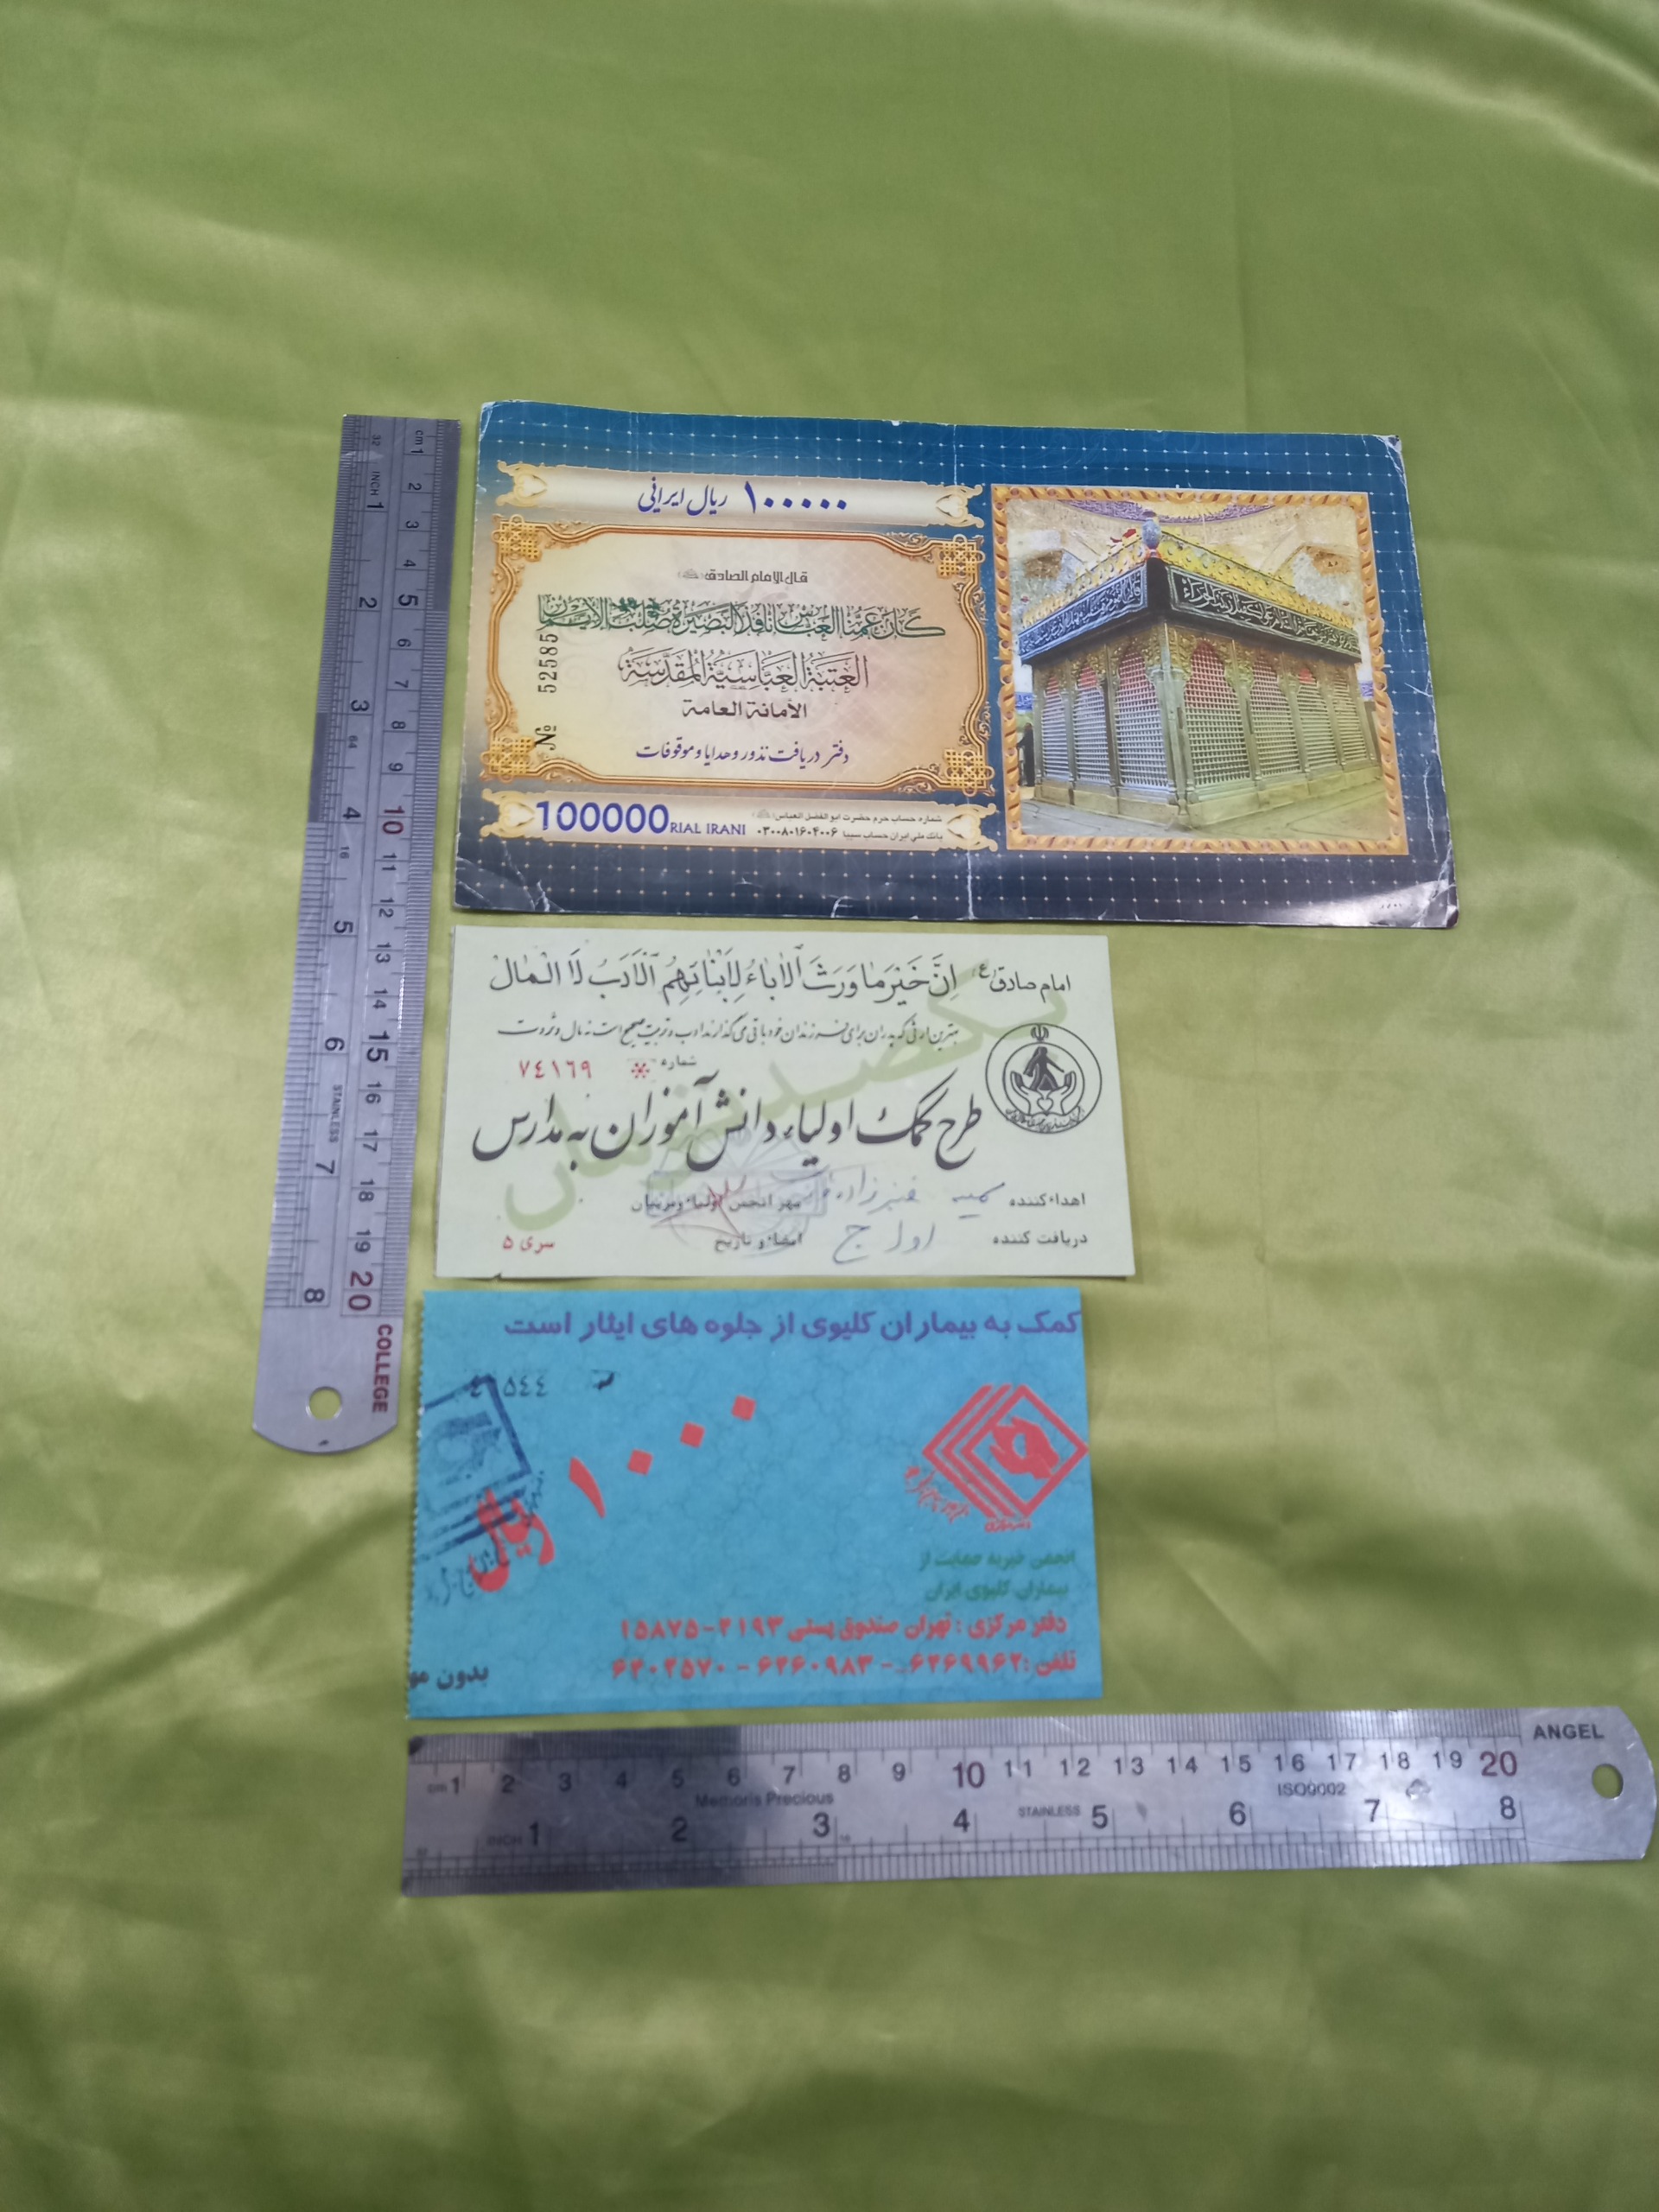 ۱۰۰۰۰۰ ریال ایرانی
قال الامام الصادق
كان عمنا العباس نافذ البصيرة صلب الايمان
العتبة العباسية المقدسة
الأمانة العامة
دفتر دریافت نذور و هدایا و موقوفات
№ 52585
100000 RIAL IRANI
شماره حساب حرم حضرت ابوالفضل العباس
بانک ملی ایران حساب سیبا ۰۳۰۰۸۰۱۶۰۴۰۰۶
امام صادق (ع) اِنَّ خَيْرَ مَا وَرَثَ الْاٰبَاءُ لِاَبْنَائِهِمُ الْاَدَبُ لَا الْمَالْ
بهترین ارثی که پدران برای فرزندان خود باقی می گذارند ادب و تربیت صحیح است نه مال و ثروت
شماره ٧٤١٦٩
یکصد تومان
طرح کمک اولیاء دانش آموزان به مدارس
اهداء کننده
مهر انجمن اولیاء و مربیان
دریافت کننده اول ج
امضاء و تاریخ
سری ۵
کمک به بیماران کلیوی از جلوه های ایثار است
۱۰۰۰ ریال
انجمن خیریه حمایت از
بیماران کلیوی ایران
دفتر مرکزی : تهران صندوق پستی ۴۱۹۳-۱۵۸۷۵
تلفن : ۶۴۶۹۹۶۲ - ۶۴۶۰۹۸۳ - ۶۴۰۲۵۷۰
بدون مو
cm 1 2 3 4 5 6 7 8 9 10 11 12 13 14 15 16 17 18 19 20
32 INCH 1 2 3 64 4 16 5 6 STAINLESS 7 8
COLLEGE
ANGEL
cm 1 2 3 4 5 6 7 8 9 10 11 12 13 14 15 16 17 18 19 20
Memoris Precious
STAINLESS
ISO9002
INCH 1 2 3 4 5 6 7 8